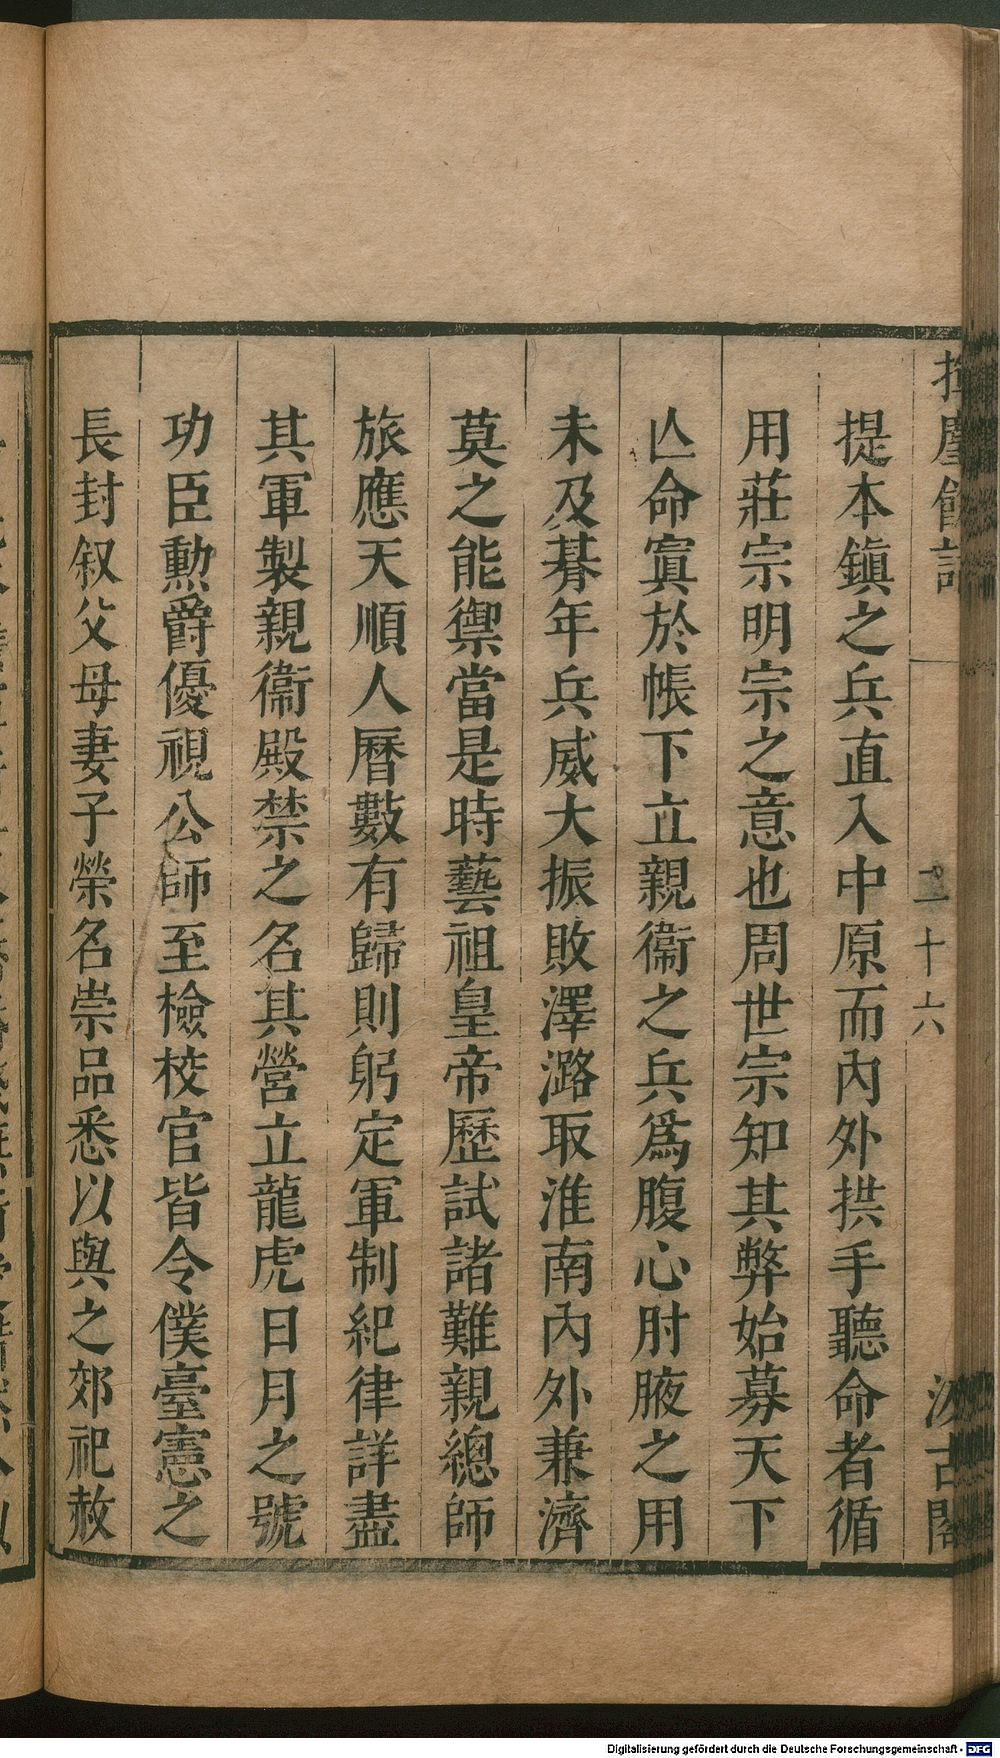 提本鎮之兵直入中原而內外拱手聽命者循
用莊宗明宗之意也周世宗知其弊始募天下
亾命寘於帳下立親衞之兵爲腹心肘腋之用
未及朞年兵威大振敗澤潞取淮南內外兼濟
莫之能禦當是時藝祖皇帝歷試諸難親總師
旅應天順人曆數有歸則躬定軍制紀律詳盡
其軍製親衞殿禁之名其營立龍虎日月之號
功臣勲爵優視公師至檢校官皆令僕臺憲之
長封叙父母妻子榮名崇品悉以與之郊祀赦
二十六
汲古閣
Digitalisierung gefördert durch die Deutsche Forschungsgemeinschaft - DFG